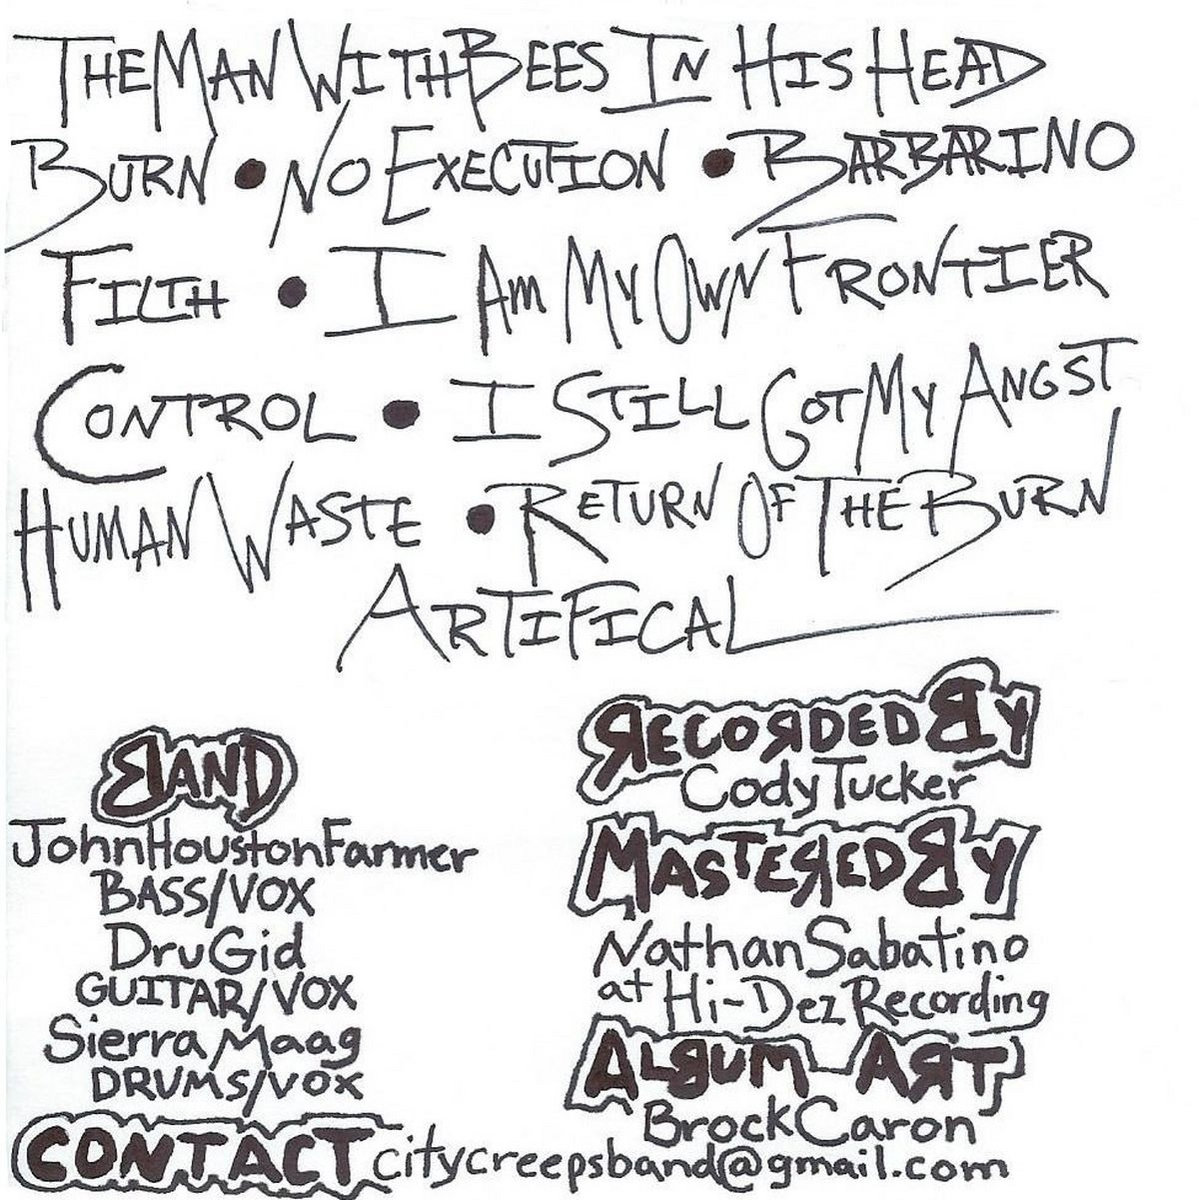 THE MAN WITH BEES IN HIS HEAD
BURN • NO EXECUTION • BARBARINO
FILTH • I AM MY OWN FRONTIER
CONTROL • I STILL GOT MY ANGST
HUMAN WASTE • RETURN OF THE BURN
ARTIFICAL
BAND
John Houston Farmer
BASS/VOX
Dru Gid
GUITAR/VOX
Sierra Maag
DRUMS/VOX
RECORDED BY
Cody Tucker
MASTERED BY
Nathan Sabatino
at Hi-Dez Recording
ALBUM ART
Brock Caron
CONTACT citycreepsband@gmail.com